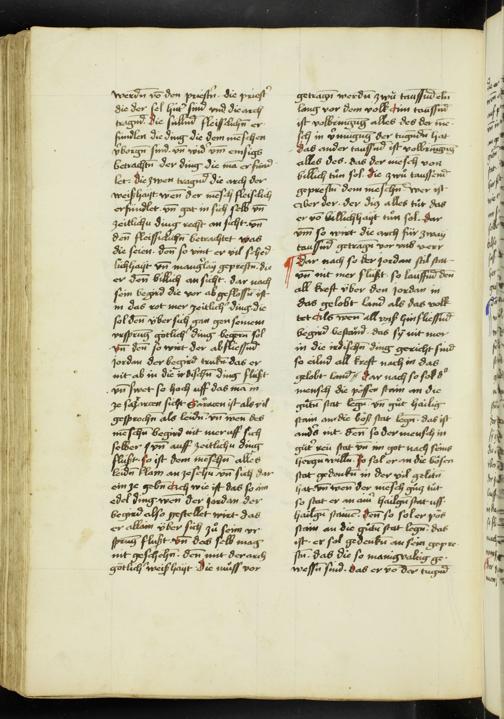 werden vo den priestn. die priest
die der sel hüt sind vnd die arch
tragnd. die sullnd fleissiclichn er
findn die ding die dem menschen
vborgn sind. vn vnd vm ensigs
betrachtn der ding die ma erfind
let. die zwen tragnd die arch der
weißhayt. wen der mesch fleisslich
erfindet. vn got in sich selb vn
zeitlichn ding recht an sicht. vn
den fleissiclichn betrachtet was
die seien. den so vint er vil schod
lichhayt vn manglay geprestn. die
er den billich an sicht. dar nach
sein begird die vor ab geflossn ist
in das rot mer zeitlich ding. die
sol den vber sich gan gen seinem
vrsprug gotlich ding begern sol
vn den so wirt der ab fliessend
Jordan der begird trukn das er
nit ab in die irdischn ding flußt
vn swet so hoch uff das ma in
ze sicht
gesprochn als leidn. vn wen des
meschn begird nit mer auff sich
selber vn auff zeitlich ding
flußt. so ist dem meschen alles
leidn klain an ze sehn vn sich dar
ein ze gebn. sich wie ist das so ain
edel ding. wen der Jordan der
begird also gestellet wirt. das
er allain vber sich zu seim vr
sprug flußt. vn das selb mag
nit geschehn. den mit der arch
gotlich weißhayt. die müß vor
getragn werdn zwu taussnd eln
lang vor dem volk. ein taussnd
ist volbringug alles des der me
sch in vnnugug der tugndn hat
das ander taussnd ist volbringug
alles des. das der mesch von
billich tun sol. die zwu taussent
geprestn dem meschn. wer ist
aber der. der diz alles tut das
er vo billichhayt tun sol. dar
vm so wirt die arch für zway
taussnd getragn vor vns verr
dar nach so der Jordan stil stat
vn nit mer flußt. so lauffnd den
all kreft vber den Jordan in
das gelobt land als das volk
tet. als wen all hinfliessnd
begird bestand. das sy nit mer
in die irdischn ding gericht sind
so eilnd all kreft nach in das
gelobt land. dar nach so sol d
mensch die pösen stain an die
gutn stat legn. vn gut hailig
stain an die böß stat legn. das ist
anders nit. den so der mensch in
gut reu stat vn im got nach seins
hertzn willn. so sol er an die bösen
stat gedenkn in der vil gelitn
hat. vn wen der mesch ging tut
so stat er an ain hailign stat uff
hailign stain. den so sol er pös
stain an die gutn stat legn. das
ist. er sol gedenkn an sein gepre
stn. das die so manigualtig ge
wessn sind. das er vo der tugnd